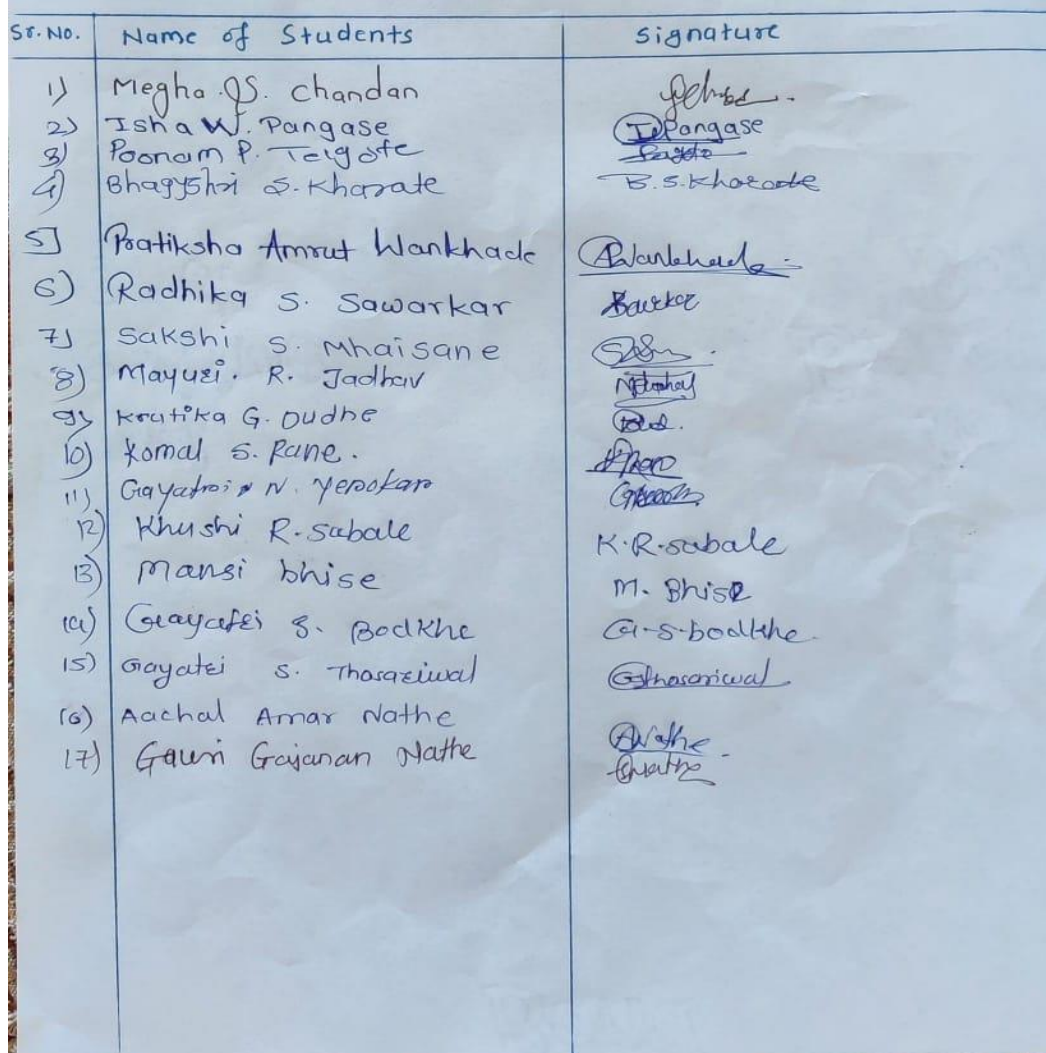 Sr. No. Name of Students Signature
1) Megha S. Chandan
2) Isha W. Pangase I Pangase
3) Poonam P. Taigote
4) Bhagyshri S. Kharate B. S. Kharate
5] Pratiksha Amrut Wankhade Wankhade
6) Radhika S. Sawarkar
7) Sakshi S. Mhaisane
8) Mayuri. R. Jadhav
9) Krutika G. Oudhe
10) Komal S. Rane.
11) Gayatri N. Yerokar
12) Khushi R. Sabale K. R. sabale
13) Mansi bhise M. Bhise
14) Gayatri S. Bodkhe G. S. bodkhe
15) Gayatri S. Tharariwal
16) Aachal Amar Nathe ANathe
17) Gauri Gajanan Nathe